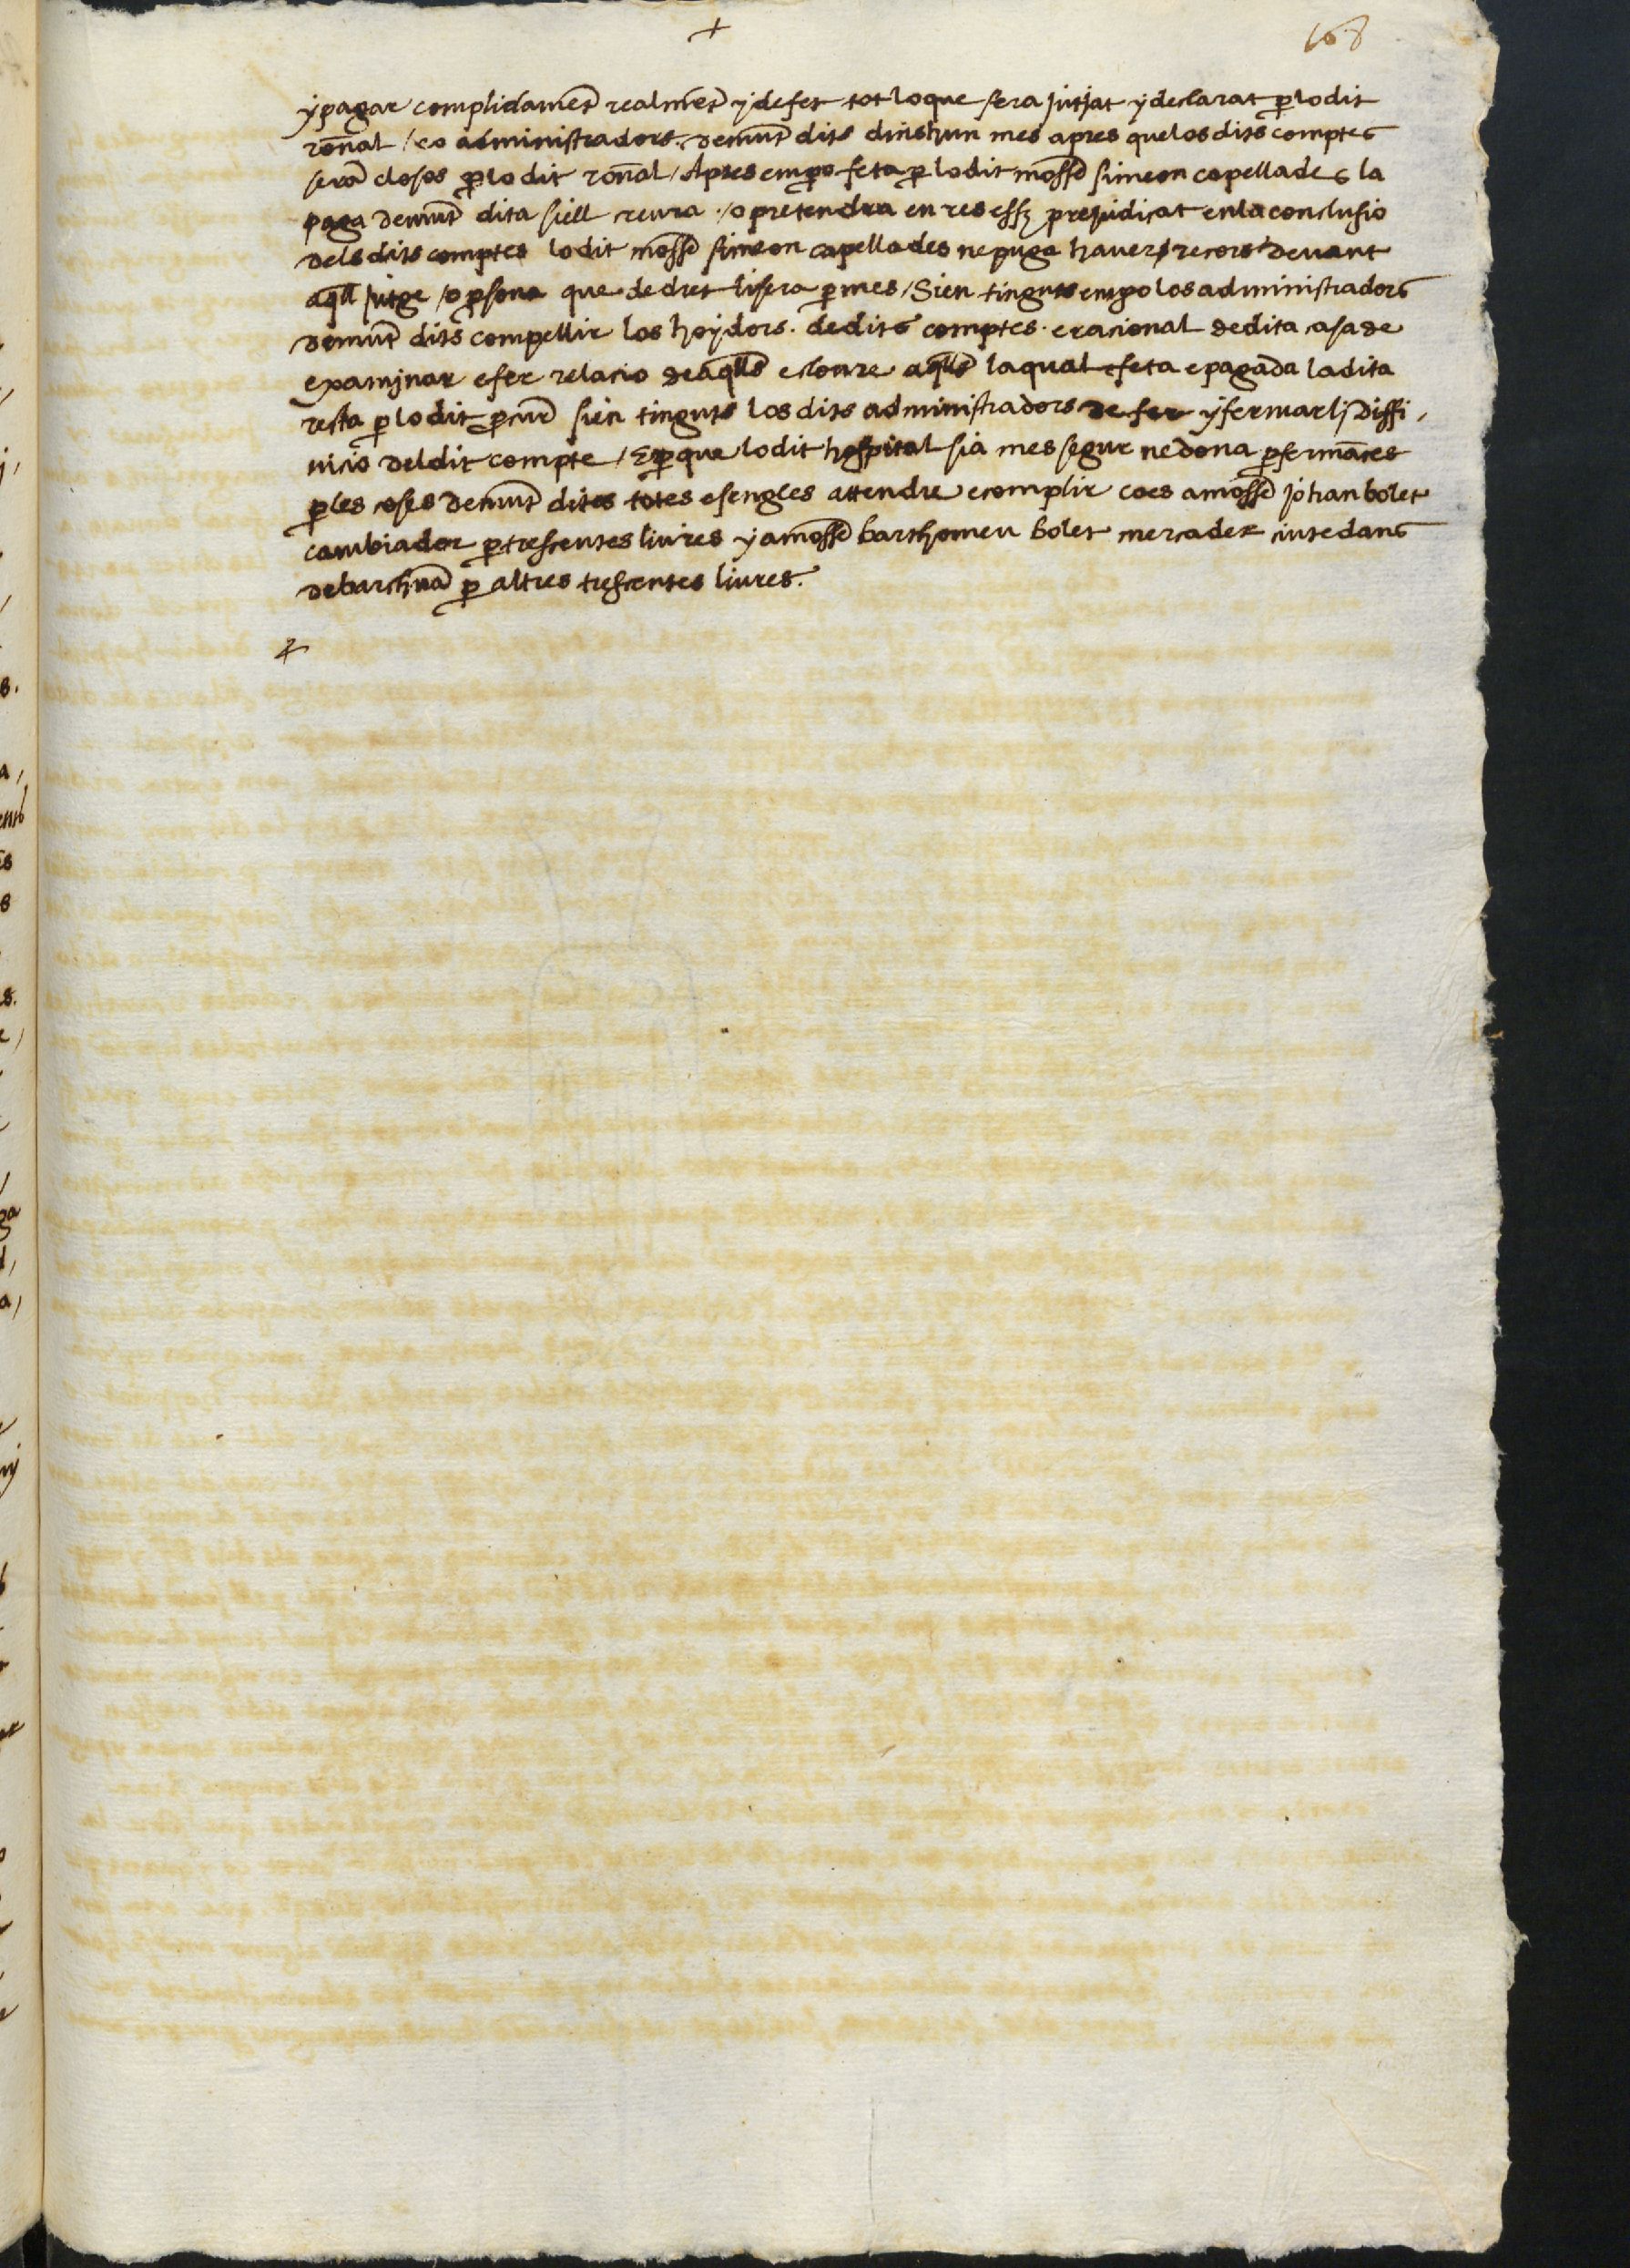 +
168
y pagar complidamēt realmēt y de fet tot lo que sera jutjat y declarat p lo dit
rōnal / eo administradors. demūt dits dins hun mes apres que los dits comptes
serā closos p lo dit rōnal / Apres empo feta p lo dit mossē simeon capellades la
paga demūt dita si ell creura / o pretendra en res esser prejudicat en la conclusio
dels dits comptes lo dit mossē simeon capellades ne puga haver recors devant
aqll jutge / o psona que de dret li sera pmes / Sien tinguts empo los administradors
demūt dits compellir los hoydors. de dits comptes. e racional de dita casa de
examjnar e fer relacio de aqlls e cloure aqlls la qual feta e pagada la dita
resta p lo dit pcur sien tinguts los dits administradors de fer y fermar lj diffi,
nicio del dit compte / E p que lo dit hospital sia mes segur ne dona p fermāces
p les coses demūt dites totes e sengles attendre e complir ço es a mossē johan bolet
cambiador p trescentes liures y a mossē barthomeu bolet mercader ciutedans
de barchna p altres trescentes liures.